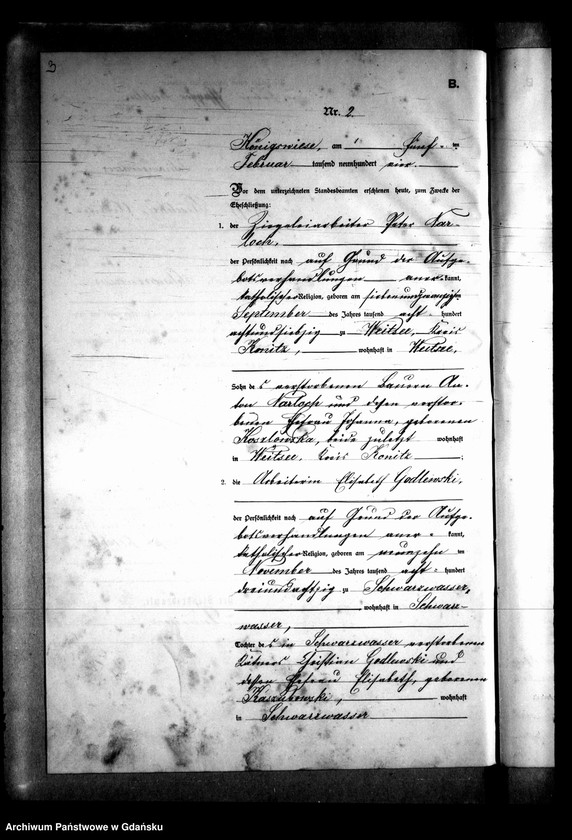 3
B.
Nr. 2
Königswiese, am fünf ten
Februar tausend neunhundert vier
Vor dem unterzeichneten Standesbeamten erschienen heute, zum Zwecke der
Eheschließung:
1. der Ziegeleiarbeiter Peter Nar-
loch,
der Persönlichkeit nach auf Grund der Aufge-
botsverhandlungen aner kannt,
katholischer Religion, geboren am siebenundzwanzigsten
September des Jahres tausend acht hundert
achtundsiebzig zu Weitsee, Kreis
Konitz, wohnhaft in Weitsee,
Sohn des verstorbenen Bauern An-
ton Narloch und dessen verstor-
benen Ehefrau Johanna, geborenen
Kozlowska, beide zuletzt wohnhaft
in Weitsee, Kreis Konitz
2. die Arbeiterin Elisabeth Godlewski,
der Persönlichkeit nach auf Grund der Aufge-
botsverhandlungen aner- kannt,
katholischer Religion, geboren am neunzehn ten
November des Jahres tausend acht- hundert
dreiundachtzig zu Schwarzwasser,
wohnhaft in Schwarz-
wasser,
Tochter des in Schwarzwasser verstorbenen
Kätners Christian Godlewski und
dessen Ehefrau Elisabeth, geborenen
wohnhaft
in Schwarzwasser
Archiwum Państwowe w Gdańsku